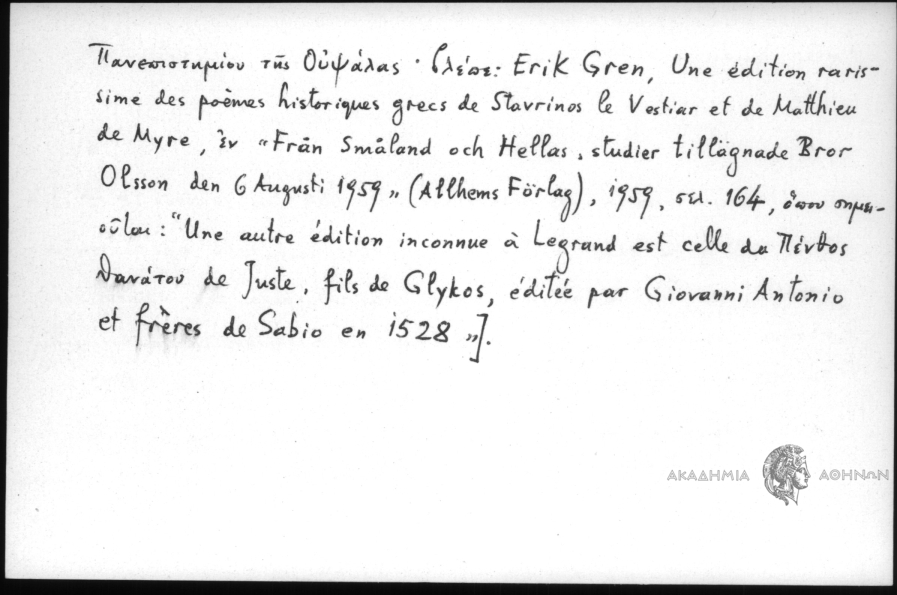 Πανεπιστημίου τῆς Οὐψάλας · βλέπε: Erik Gren, Une édition raris-
sime des poèmes historiques grecs de Stavrinos le Vestiar et de Matthieu
de Myre, ἐν "Från Småland och Hellas, studier tillägnade Bror
Olsson den 6 Augusti 1959„ (Allhems Förlag), 1959, σελ. 164, ὅπου σημει-
οῦται: "Une autre édition inconnue à Legrand est celle du Πένθος
θανάτου de Juste, fils de Glykos, éditée par Giovanni Antonio
et frères de Sabio en 1528 „].
ΑΚΑΔΗΜΙΑ ΑΘΗΝΩΝ